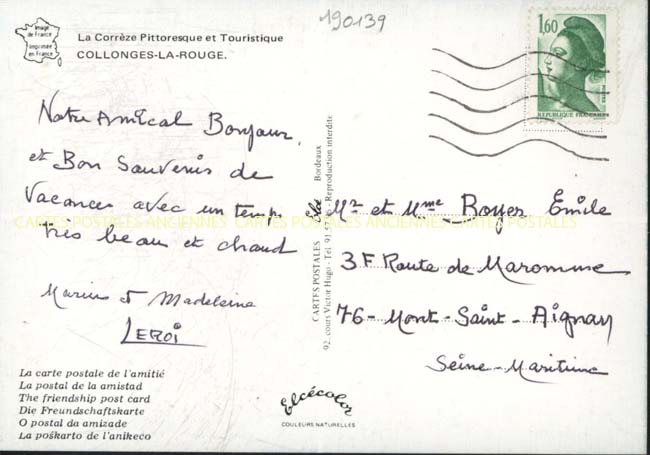 190139
Image
de France
Imprimée
en France
La Corrèze Pittoresque et Touristique
COLLONGES-LA-ROUGE.
1,60
POSTES
REPUBLIQUE FRANÇAISE
Notre Amical Bonjour,
et Bon Souvenir de
Vacances avec un temps
très beau et chaud
Marius et Madeleine
LEROI
CARTES POSTALES ANCIENNES CARTES POSTALES ANCIENNES
CARTES POSTALES Bordeaux
92, cours Victor Hugo - Tél. 91 57 - Reproduction interdite
Mr et Mme Boyer Émile
3F Route de Maromme
76-Mont-Saint-Aignan
Seine-Maritime
La carte postale de l'amitié
La postal de la amistad
The friendship post card
Die Freundschaftskarte
O postal da amizade
La poŝkarto de l'anikeco
elcécolor
COULEURS NATURELLES